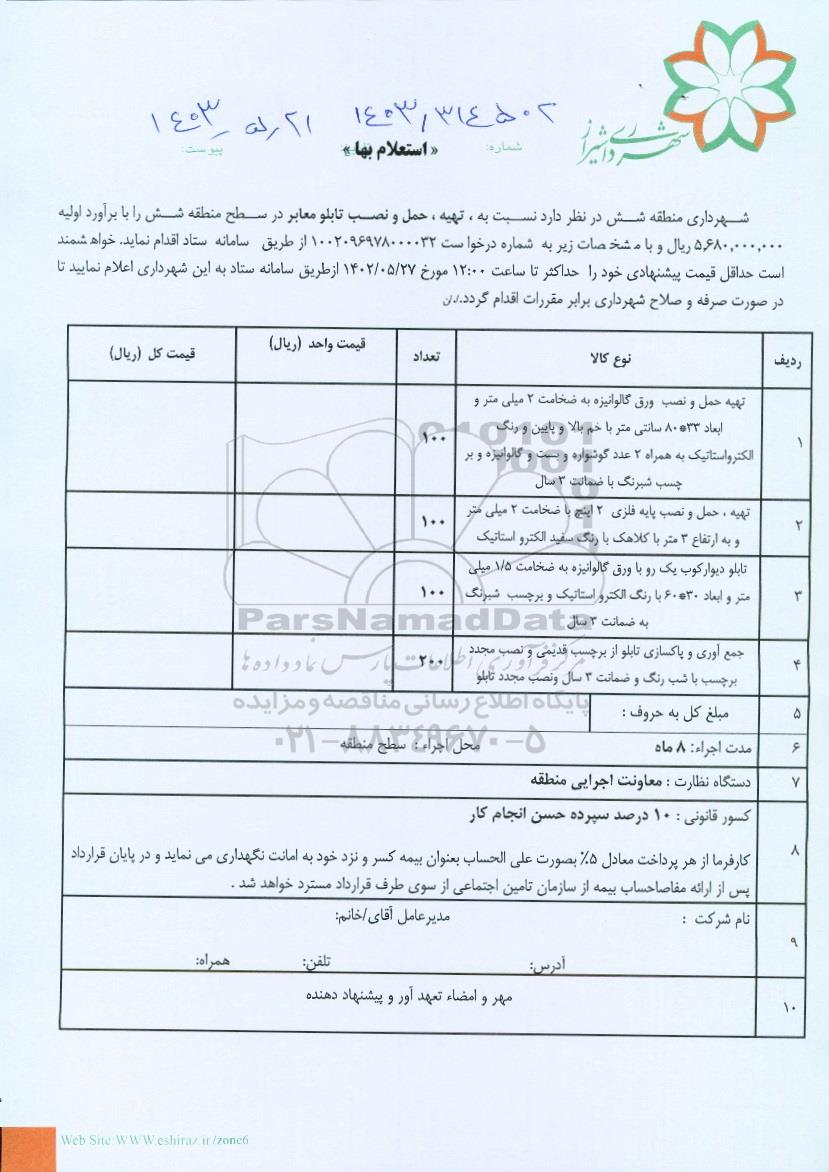 شهرداری شیراز
شماره: ۱۴۰۳/۳۱۴۵۰۲
۱۴۰۳/۵/۲۱
پیوست:
« استعلام بها »
شهرداری منطقه شش در نظر دارد نسبت به ، تهیه ، حمل و نصب تابلو معابر در سطح منطقه شش را با برآورد اولیه
۵,۶۸۰,۰۰۰,۰۰۰ ریال و با مشخصات زیر به شماره درخواست ۱۰۰۲۰۹۶۹۷۸۰۰۰۰۳۲ از طریق سامانه ستاد اقدام نماید. خواهشمند
است حداقل قیمت پیشنهادی خود را حداکثر تا ساعت ۱۲:۰۰ مورخ ۱۴۰۲/۰۵/۲۷ ازطریق سامانه ستاد به این شهرداری اعلام نمایید تا
در صورت صرفه و صلاح شهرداری برابر مقررات اقدام گردد./.ن
ردیف نوع کالا تعداد قیمت واحد (ریال) قیمت کل (ریال)
۱ تهیه حمل و نصب ورق گالوانیزه به ضخامت ۲ میلی متر و
ابعاد ۳۳*۸۰ سانتی متر با خم بالا و پایین و رنگ
الکترواستاتیک به همراه ۲ عدد گوشواره و بست و گالوانیزه و بر
چسب شبرنگ با ضمانت ۳ سال
۱۰۰
۲ تهیه ، حمل و نصب پایه فلزی ۲ اینچ با ضخامت ۲ میلی متر
و به ارتفاع ۳ متر با کلاهک با رنگ سفید الکترو استاتیک
۱۰۰
۳ تابلو دیوارکوب یک رو با ورق گالوانیزه به ضخامت ۱/۵ میلی
متر و ابعاد ۳۰*۶۰ با رنگ الکترو استاتیک و برچسب شبرنگ
به ضمانت ۳ سال
۱۰۰
۴ جمع آوری و پاکسازی تابلو از برچسب قدیمی و نصب مجدد
برچسب با شب رنگ و ضمانت ۳ سال ونصب مجدد تابلو
۲۰۰
۵ مبلغ کل به حروف :
۶ مدت اجراء: ۸ ماه محل اجراء : سطح منطقه
۷ دستگاه نظارت : معاونت اجرایی منطقه
۸ کسور قانونی : ۱۰ درصد سپرده حسن انجام کار
کارفرما از هر پرداخت معادل ۵٪ بصورت علی الحساب بعنوان بیمه کسر و نزد خود به امانت نگهداری می نماید و در پایان قرارداد
پس از ارائه مفاصاحساب بیمه از سازمان تامین اجتماعی از سوی طرف قرارداد مسترد خواهد شد .
۹ نام شرکت : مدیرعامل آقای/خانم:
آدرس: تلفن: همراه:
۱۰ مهر و امضاء تعهد آور و پیشنهاد دهنده
ParsNamadData
مرکز فرآوری اطلاعات پارس نماد داده ها
پایگاه اطلاع رسانی مناقصه و مزایده
۰۲۱-۸۸۳۴۹۶۷۰-۵
Web Site:WWW.eshiraz.ir/zone6